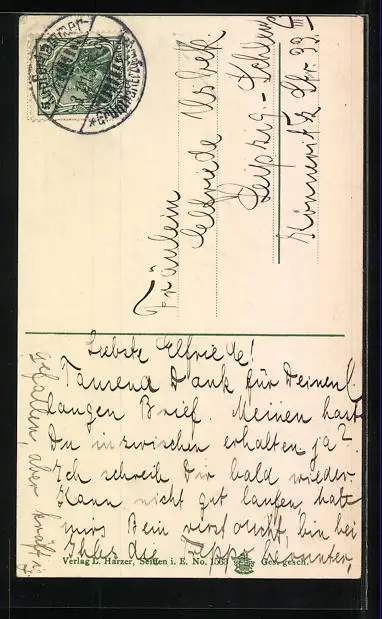 Fräulein
Elfriede Usbek
Leipzig-Schleus
Könneritz Str. 99 III
Liebste Elfriede!
Tausend Dank für Deinen l.
langen Brief. Meinen hast
Du inzwischen erhalten ja?
Ich schreib Dir bald wieder.
Kann nicht gut laufen, hab
mirs Bein verstaucht, bin bei
die Treppe herunter
gefallen, aber
Verlag L. Harzer, Seiffen i. E. No. Ges. gesch.